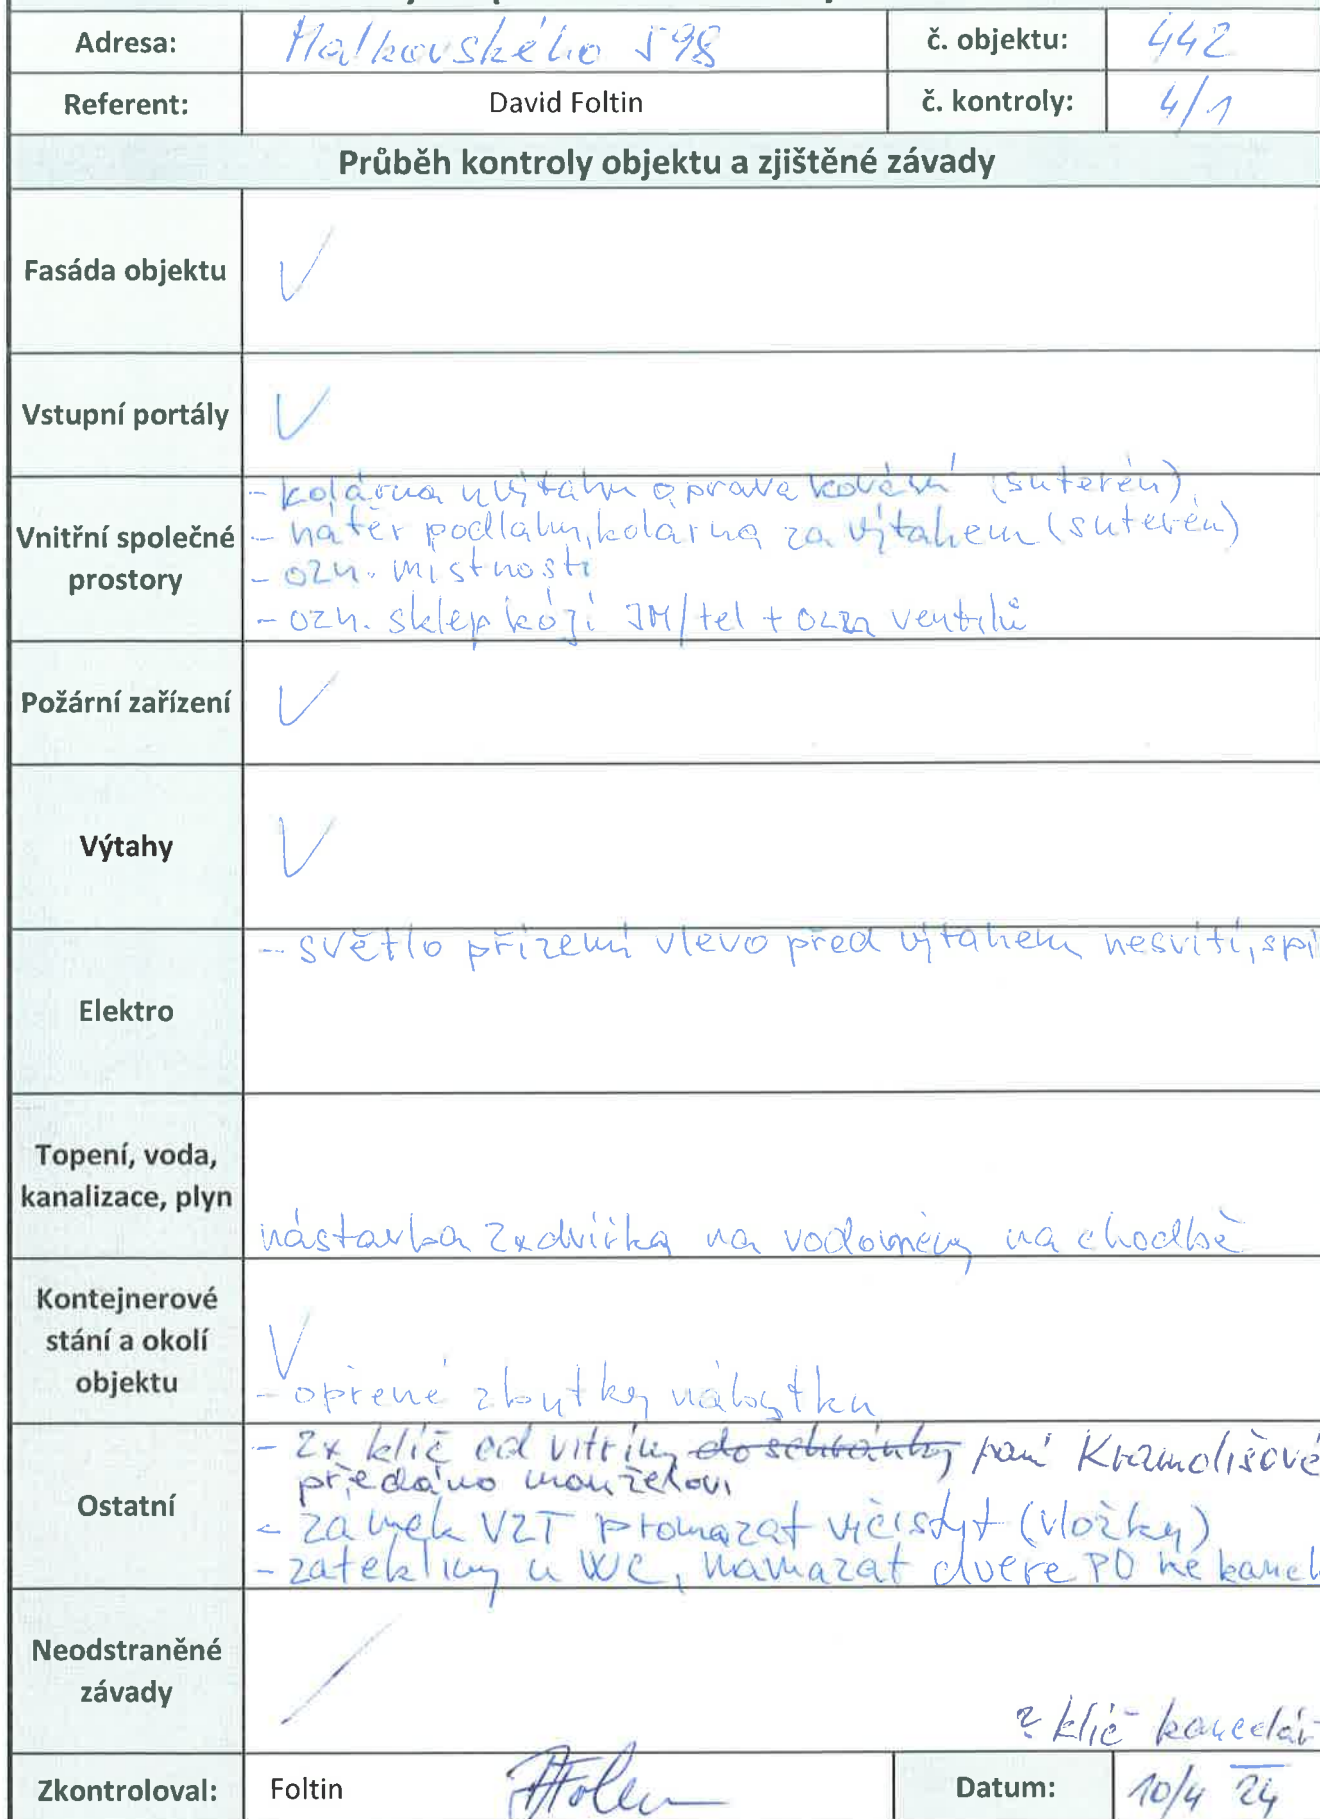 Adresa: Malkovského 598 č. objektu: 442
Referent: David Foltin č. kontroly: 4/1
Průběh kontroly objektu a zjištěné závady
Fasáda objektu V
Vstupní portály V
Vnitřní společné prostory
- kolárna u výtahu oprava kování (suterén)
- nátěr podlahy, kolárna za výtahem (suterén)
- ozn. místnosti
- ozn. sklep kójí JM/tel + ozn ventilů
Požární zařízení V
Výtahy V
Elektro
- světlo přízemí vlevo před výtahem nesvítí,
Topení, voda,
kanalizace, plyn
nástavba 2x dvířka na vodoměry na chodbě
Kontejnerové
stání a okolí
objektu
V
- opřené zbytky nábytku
Ostatní
- 2x klíč od vitríny do schránky paní
předáno manželovi
- zámek VZT promazat vyčistyt (vložky)
- zatekliny u WC, namazat dveře PO
Neodstraněné
závady
/
? klíč
Zkontroloval: Foltin Datum: 10/4 24